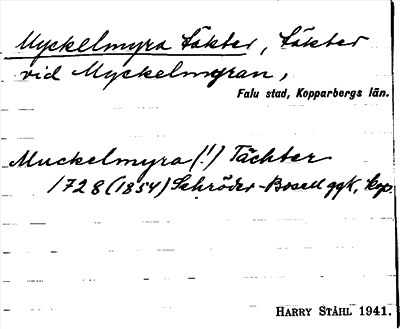 Myckelmyra Täkter, täkter
vid Myckelmyran,
Falu stad, Kopparbergs län.
Muckelmyra (!) Tächter
1728 (1854) Schröder-Bosell ggk, kop.
HARRY STÅHL 1941.